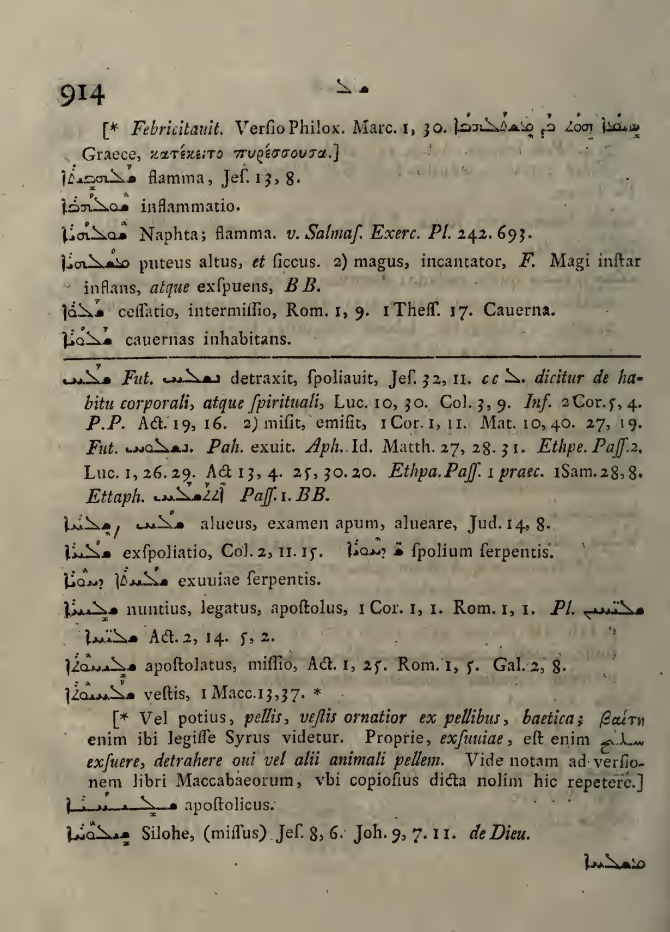 914 ܫܠ
[* Febricitauit. Verſio Philox. Marc. 1, 30.
Graece, κατέκειτο πυρέσσουσα.]
ܫܠܗܒܝܬܐ flamma, Jeſ. 13, 8.
ܫܘܠܗܒܐ inflammatio.
Naphta; flamma. v. Salmaſ. Exerc. Pl. 242. 693.
puteus altus, et ſiccus. 2) magus, incantator, F. Magi inſtar
inflans, atque exſpuens, BB.
ceſſatio, intermiſſio, Rom. 1, 9. 1 Theſſ. 17. Cauerna.
cauernas inhabitans.
ܫܠܚ Fut. ܢܫܠܚ detraxit, ſpoliauit, Jeſ. 32, 11. cc ܠ. dicitur de ha-
bitu corporali, atque ſpirituali, Luc. 10, 30. Col. 3, 9. Inf. 2 Cor. 5, 4.
P. P. Act. 19, 16. 2) miſit, emiſit, 1 Cor. 1, 11. Mat. 10, 40. 27, 19.
Fut. ܢܫܠܘܚ. Pah. exuit. Aph. Id. Matth. 27, 28. 31. Ethpe. Paſſ. 2.
Luc. 1, 26. 29. Act 13, 4. 25, 30. 20. Ethpa. Paſſ. 1 praec. 1 Sam. 28, 8.
Ettaph. ܐܬܬܫܠܚ Paſſ. 1. BB.
ܫܠܚ, ܫܠܚܐ alueus, examen apum, alueare, Jud. 14, 8.
ܫܠܚܐ exſpoliatio, Col. 2, 11. 15. ſpolium ſerpentis.
exuuiae ſerpentis.
ܫܠܝܚܐ nuntius, legatus, apoſtolus, 1 Cor. 1, 1. Rom. 1, 1. Pl. ܫܠܝܚܝܢ
ܫܠܝܚܐ Act. 2, 14. 5, 2.
ܫܠܝܚܘܬܐ apoſtolatus, miſſio, Act. 1, 25. Rom. 1, 5. Gal. 2, 8.
veſtis, 1 Macc. 13, 37. *
[* Vel potius, pellis, veſtis ornatior ex pellibus, baetica; βαίτη
enim ibi legiſſe Syrus videtur. Proprie, exſuuiae, eſt enim سلخ
exſuere, detrahere oui vel alii animali pellem. Vide notam ad verſio-
nem libri Maccabaeorum, vbi copioſius dicta nolim hic repetere.]
ܫܠܝܚܝܐ apoſtolicus.
ܫܝܠܘܚܐ Silohe, (miſſus) Jeſ. 8, 6. Joh. 9, 7. 11. de Dieu.
ܡܫܠܚܐ